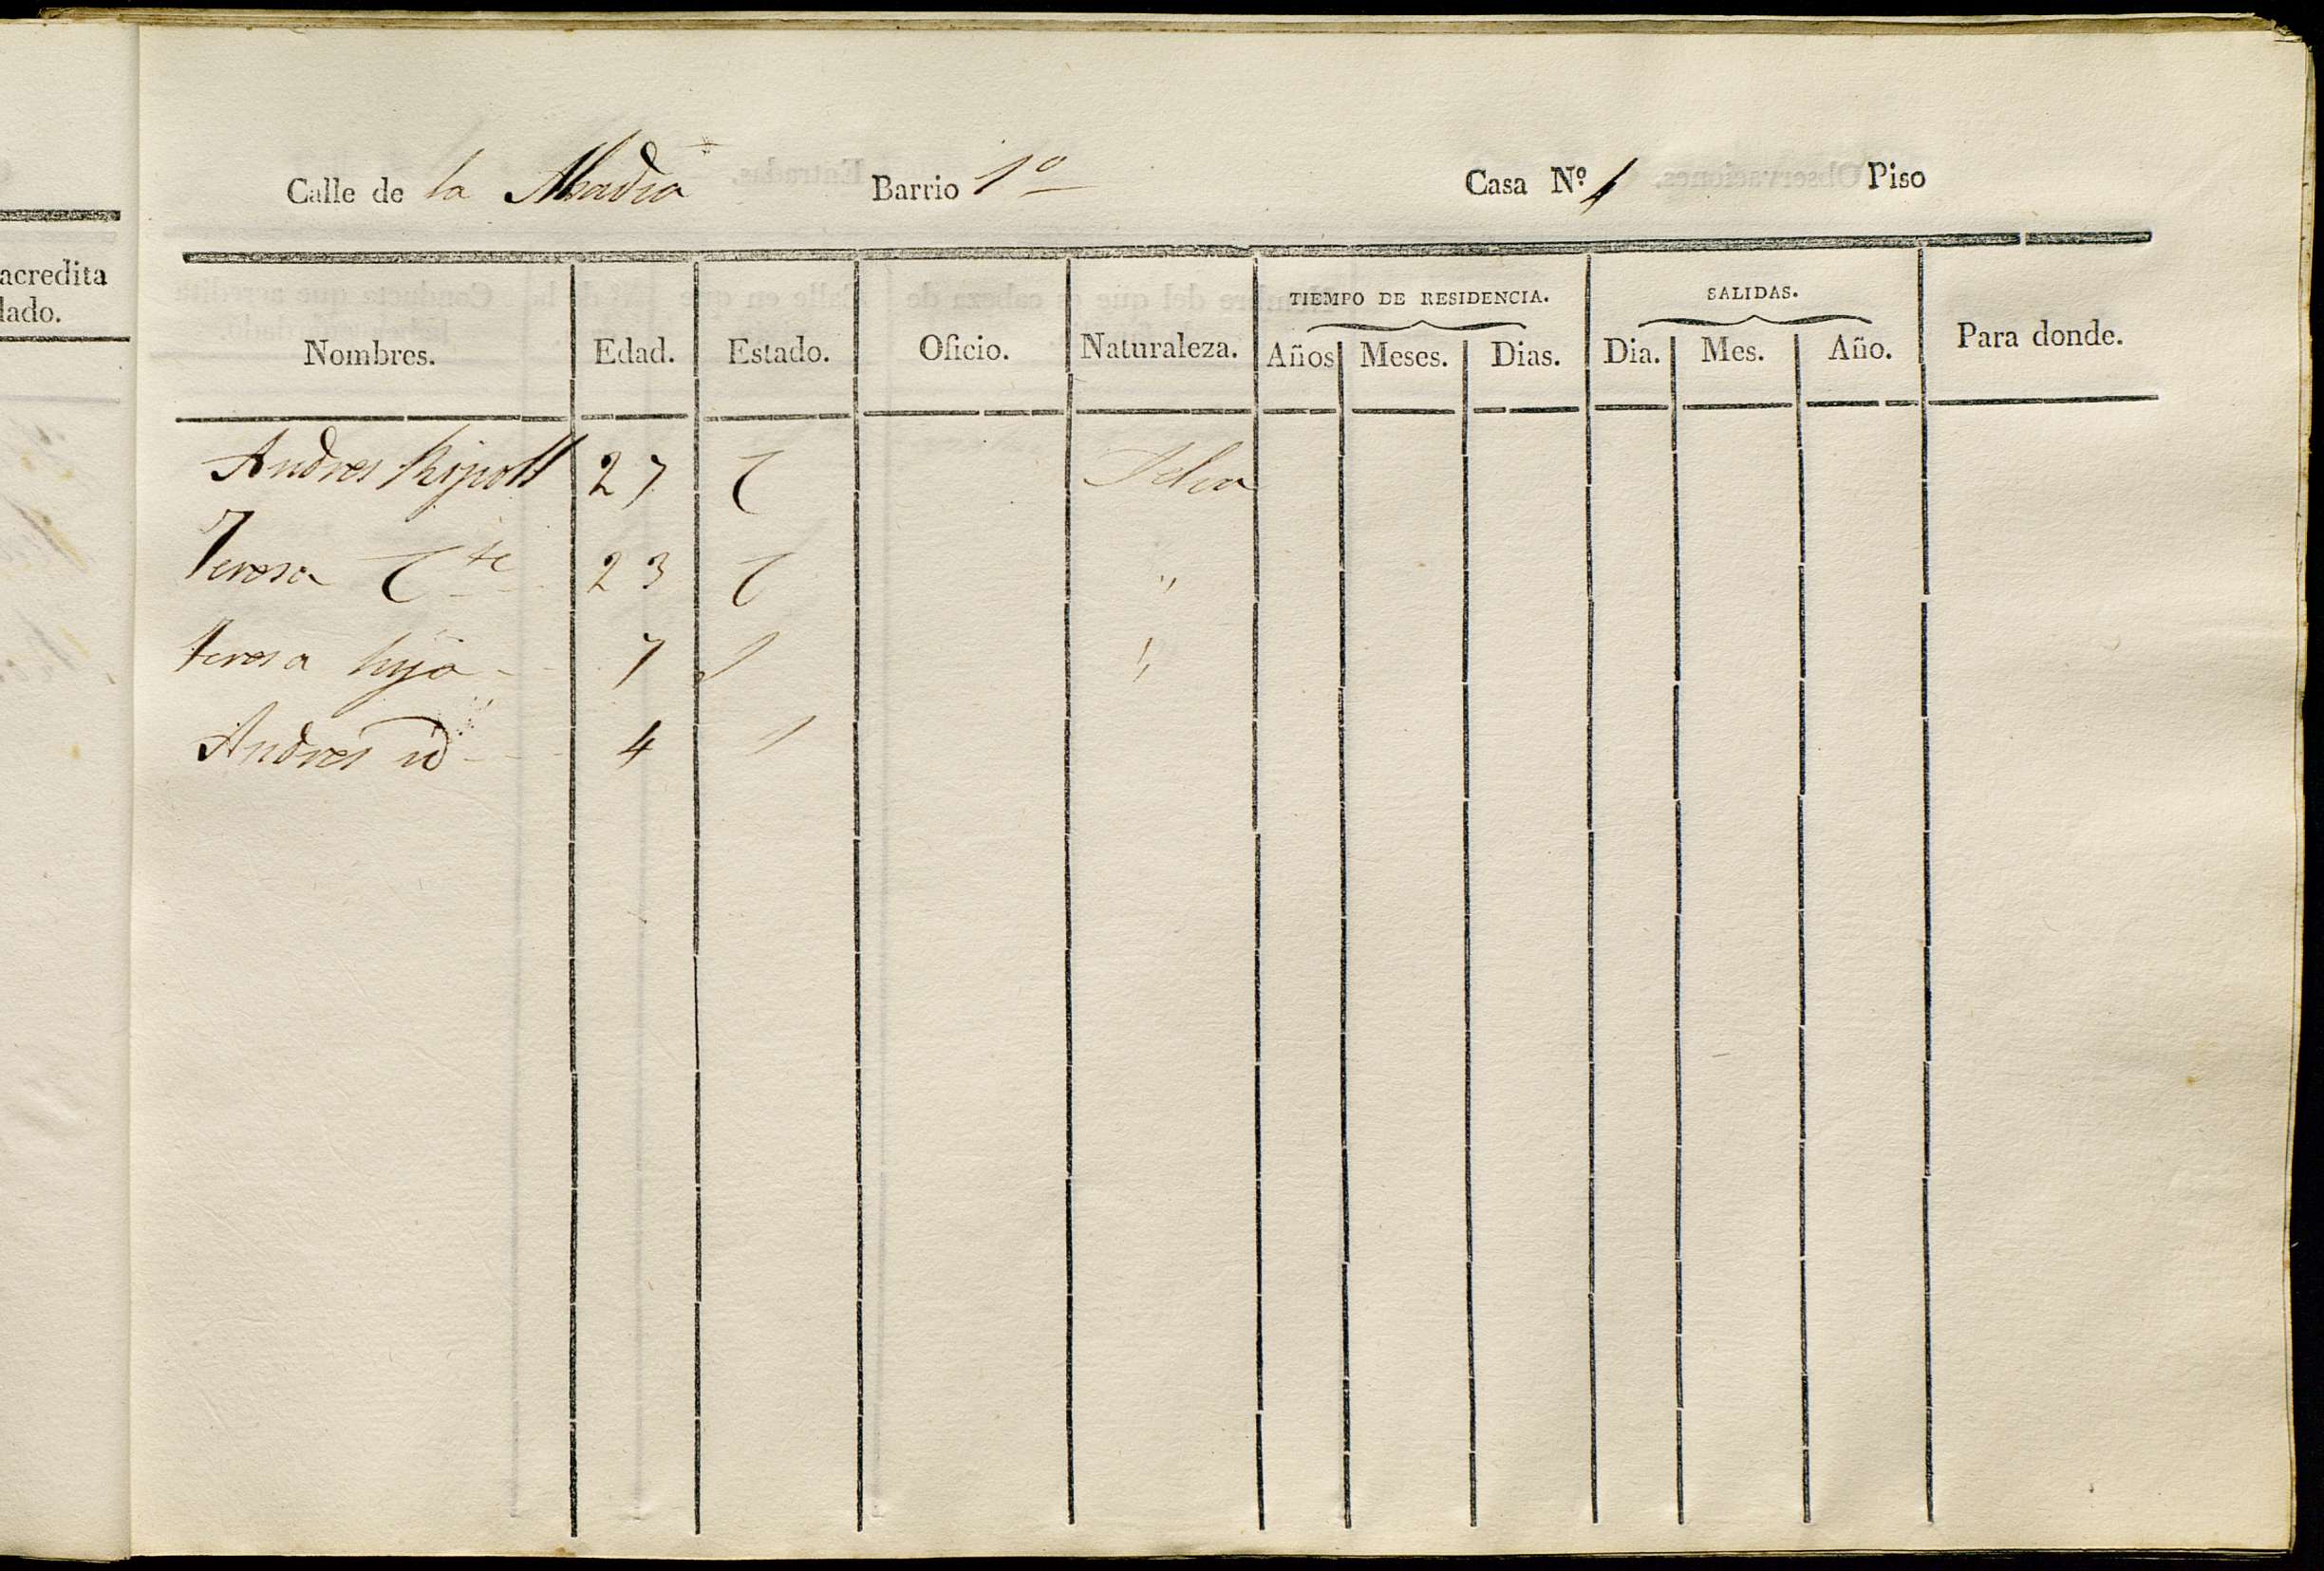 acredita
lado.
Calle de la Abadia Barrio 1º Casa Nº 1 Piso
TIEMPO DE RESIDENCIA. SALIDAS.
Nombres. Edad. Estado. Oficio. Naturaleza. Años Meses. Dias. Dia. Mes. Año. Para donde.
Andres Ripoll 27 C Selva
Teresa C te 23 C "
Teresa hija 7 S "
Andres id 4